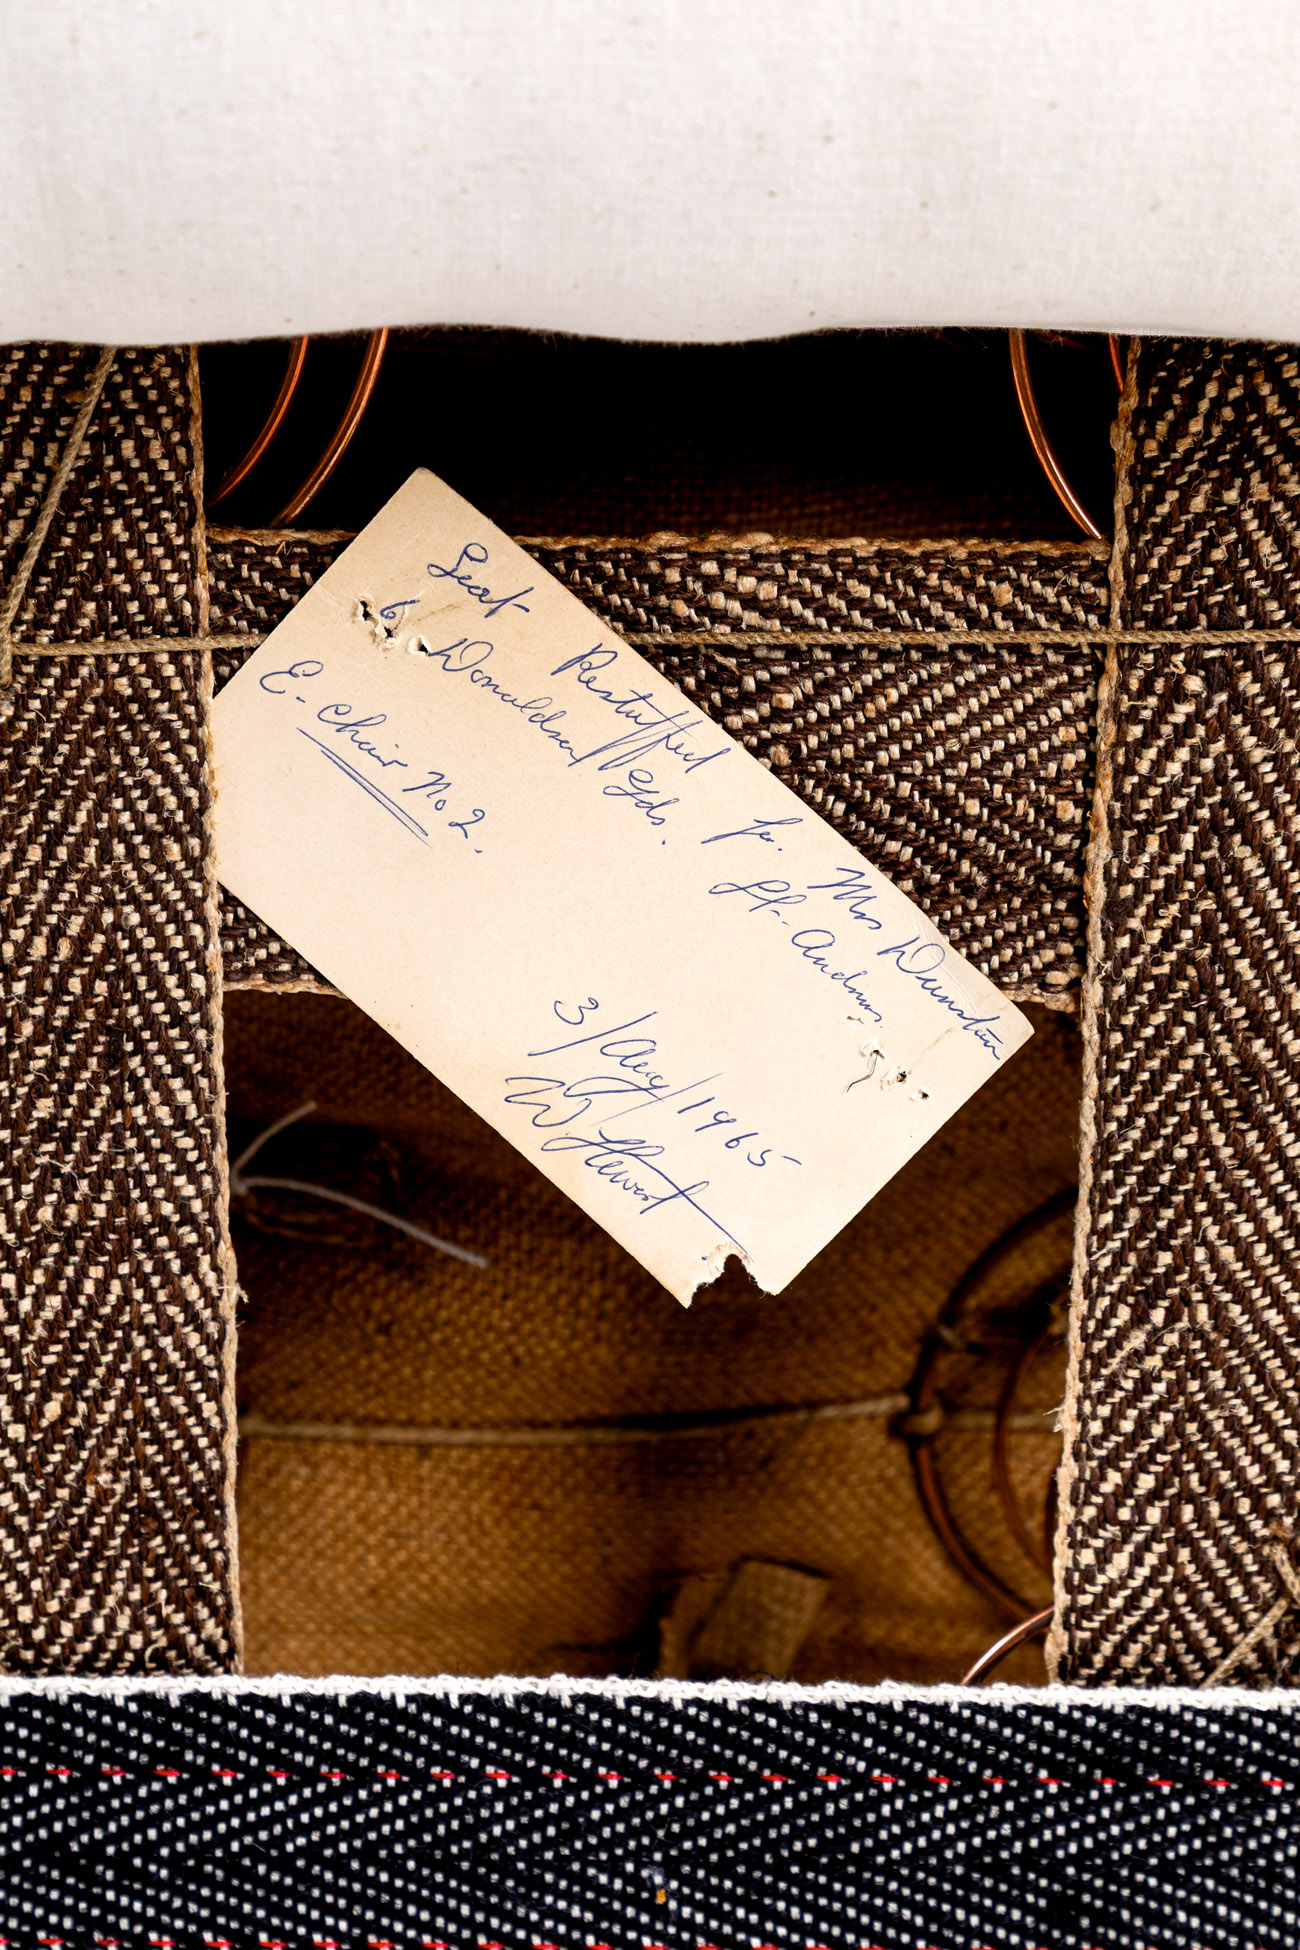 Seat Restuffed for. Mrs Dunstan
6 Donaldson Gds. St. Andrews
E-Chair No 2.
3/Aug/1965
W Hewest